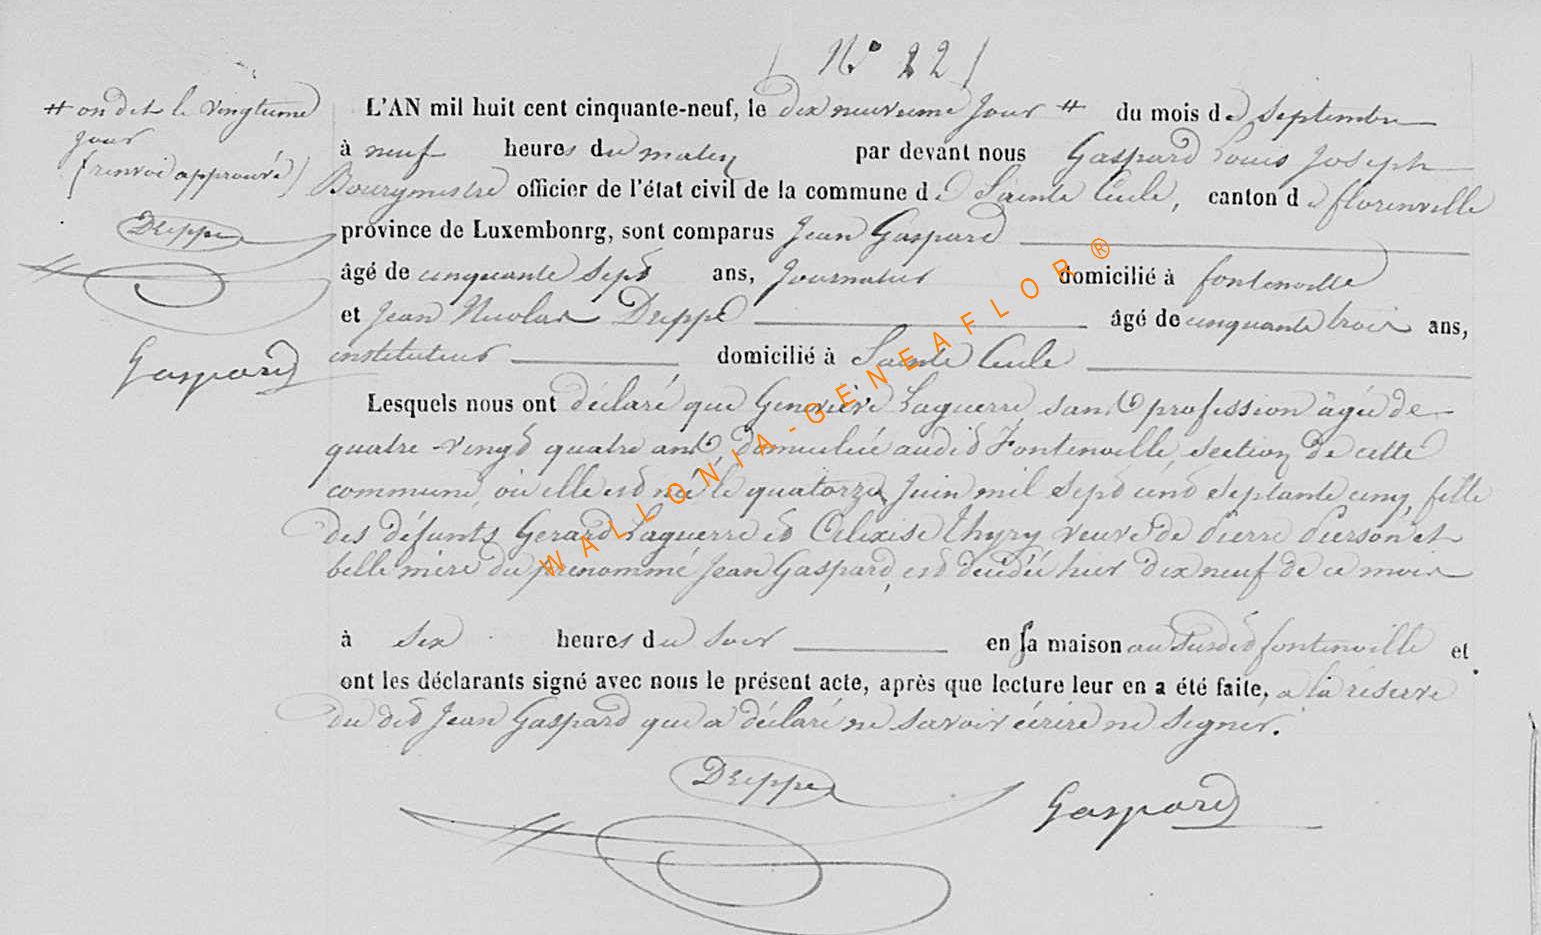 N° 22
# on dit le vingtieme
jour
(renvoi approuvé)
Dreppe
Gaspard
L'AN mil huit cent cinquante-neuf, le dix neuvieme jour # du mois de septembre
à neuf heures du matin par devant nous Gaspard Louis Joseph
Bourgmestre officier de l'état civil de la commune de Sainte Cécile, canton de florenville
province de Luxembonrg, sont comparus Jean Gaspard
âgé de cinquante sept ans, Journalier domicilié à fontenoille
et Jean Nicolas Dreppe âgé de cinquante trois ans,
instituteur domicilié à Sainte Cécile
Lesquels nous ont déclaré que Geneviève Laguerre, sans profession âgée de
quatre-vingt quatre ans, domiciliée audit Fontenoille section de cette
commune, où elle est née le quatorze Juin mil sept cent septante cinq, fille
des défunts Gerard Laguerre et Thyry veuve de Pierre Pierson et
belle mère du prénommé Jean Gaspard, est décédée hier dix neuf de ce mois
à six heures du soir en sa maison au susdit fontenoille et
ont les déclarants signé avec nous le présent acte, après que lecture leur en a été faite, a la réserve
du dit Jean Gaspard qui a déclaré ne savoir écrire ne signer.
Dreppe Gaspard
WALLONIA-GENEAFLOR®